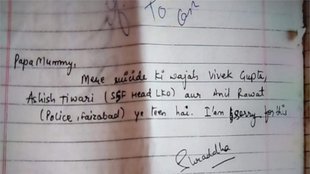 To
Papa Mummy,
Meye suicide ki wajah Vivek Gupta,
Ashish Tiwari (SSF Head LKO) aur Anil Rawat
(Police, Faizabad) ye teen hai. I'am sorry for this
Shraddha